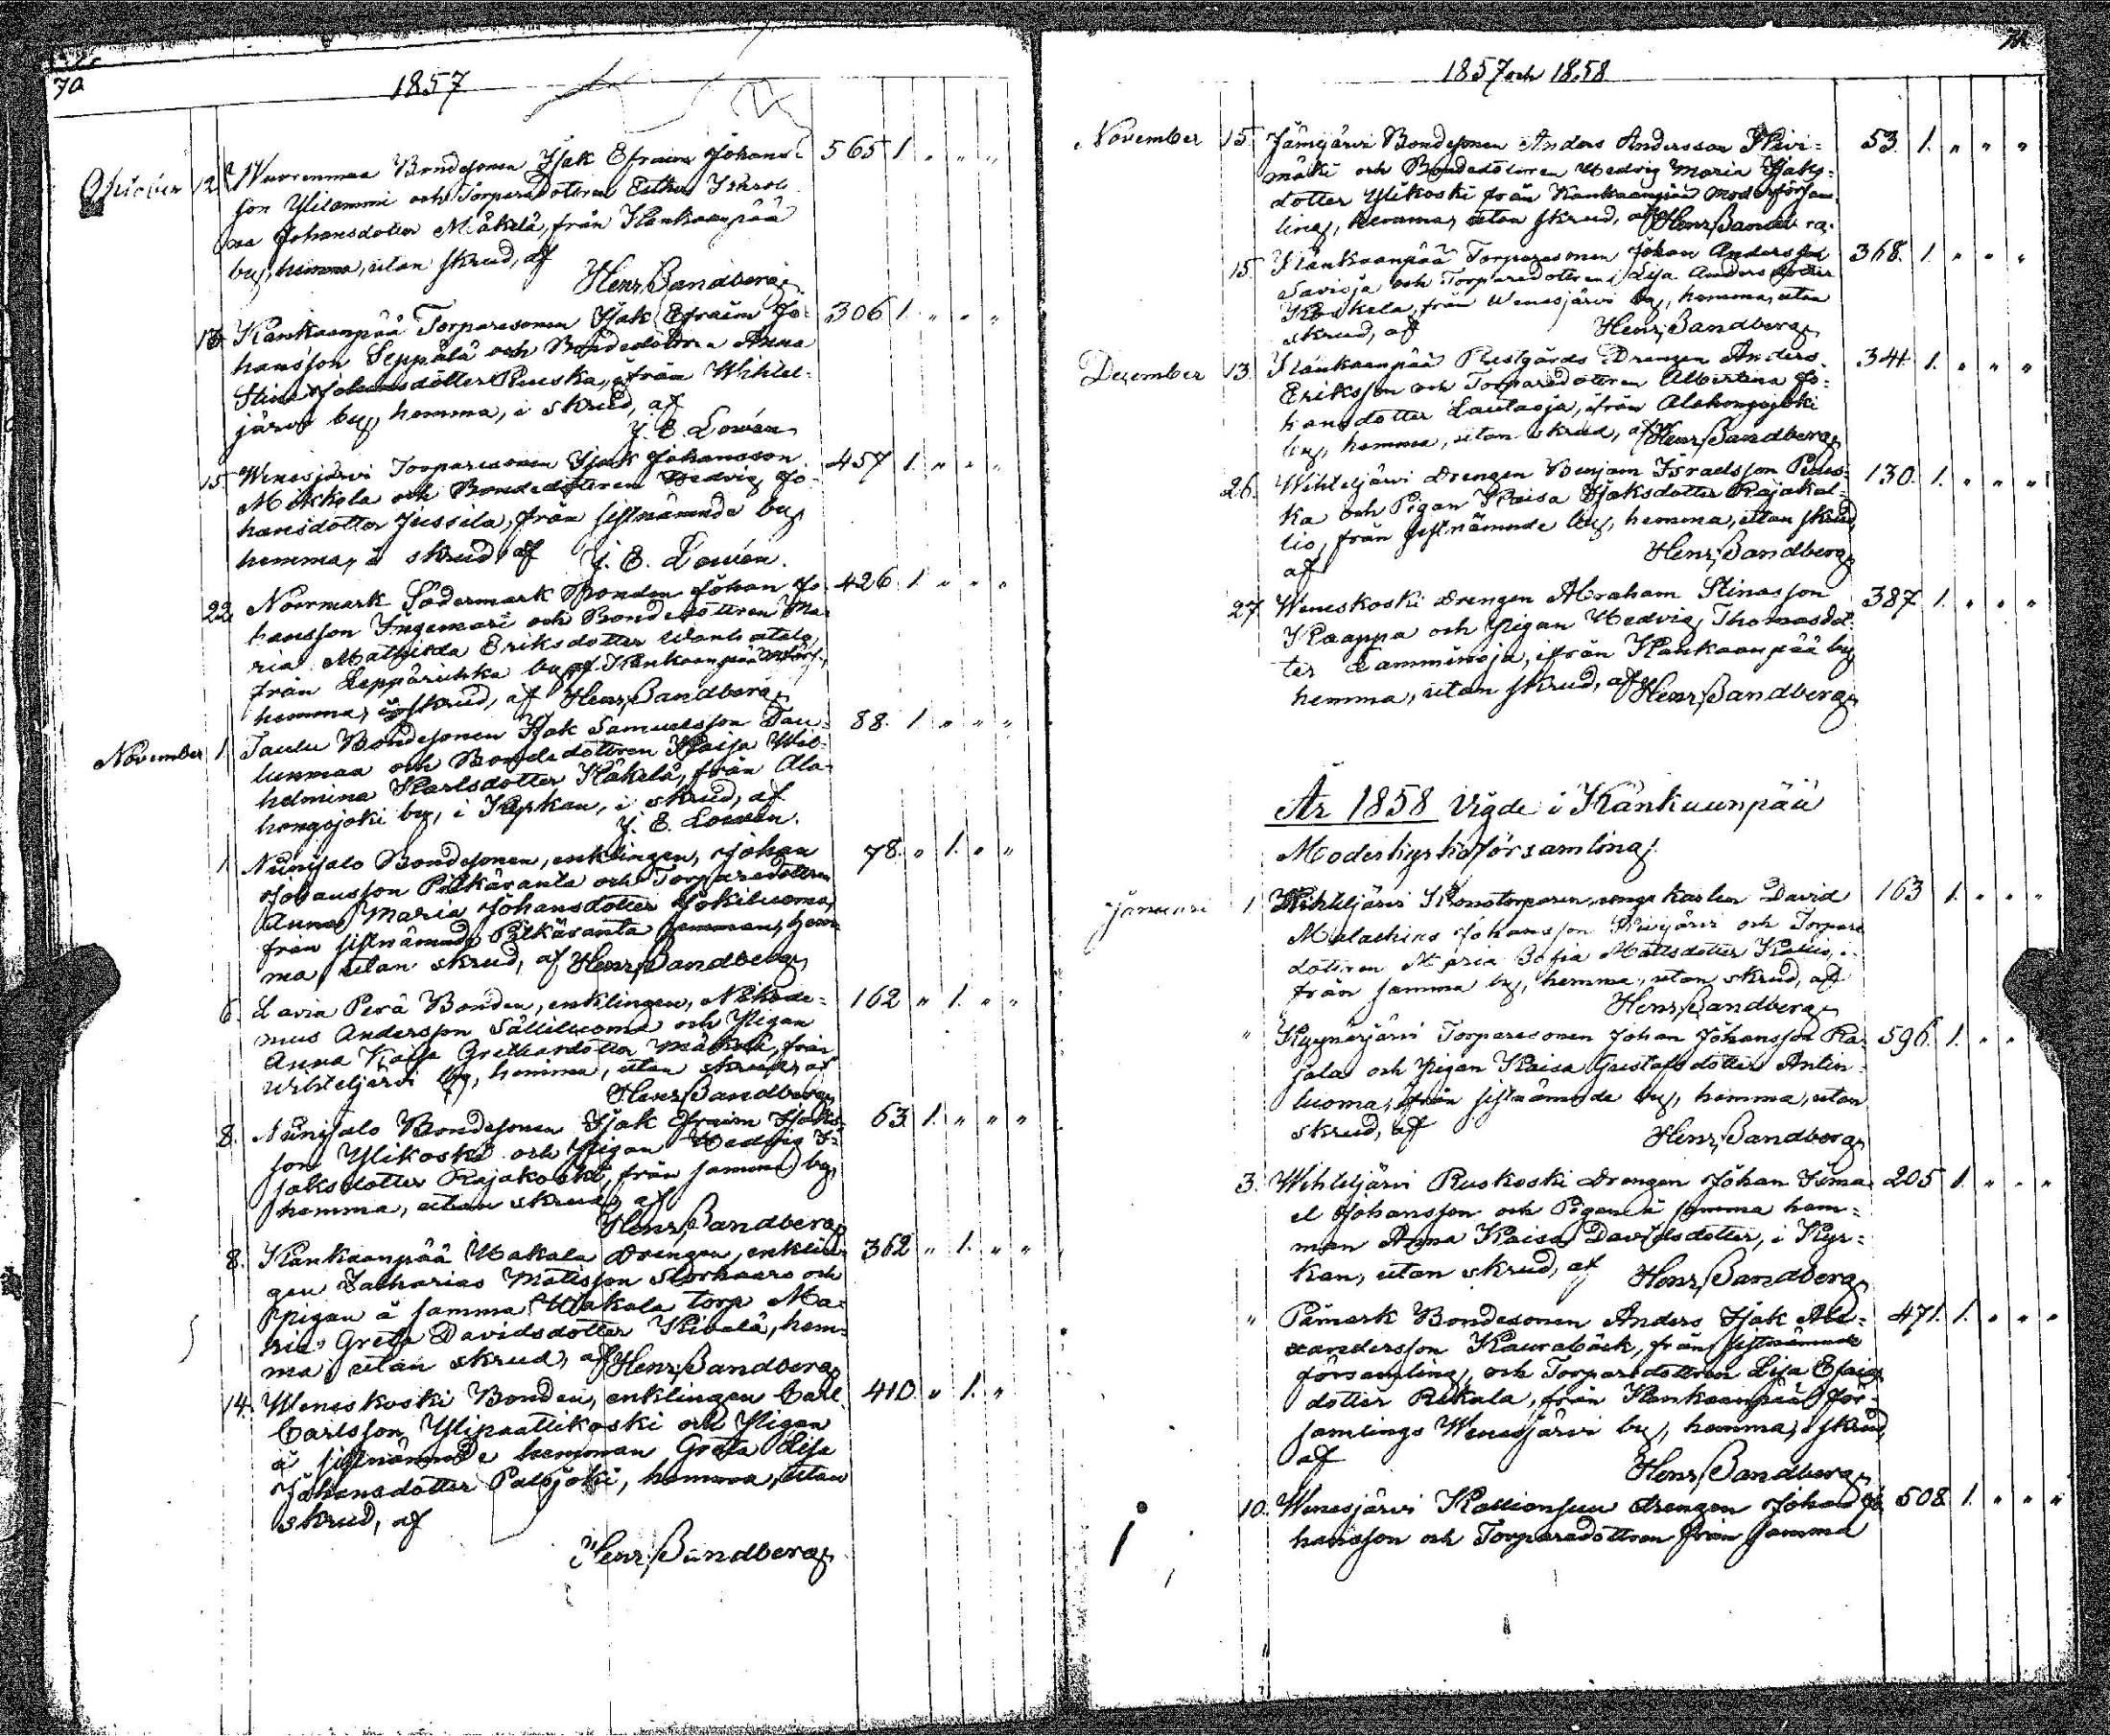 70
1857
October 12. Wuorenmaa Bondesonen Isak Efraim Johans- 565 1. " " "
son Ylilammi och Torparedottren Esther
Johansdotter Mäkelä, från Kankaanpää
by, hemma, utan skrud, af
Henr. Sandberg
13. Kankaanpää Torparesonen Isak Efraim Jo- 306 1. " " "
hansson Seppälä och Bondedottren Anna
Stina Johansdotter Ruuska, från Wihtel-
järvi by, hemma, i skrud, af
J. E. Lowén
15. Wenesjärvi Torparesonen Isak Johansson 457 1. " " "
Mikkola och Bondedottren Hedvig Jo-
hansdotter Jussila, från sistnämnde by
hemma, i skrud, af J. E. Lowén.
22. Norrmark Södermark Bonden Johan Jo- 426 1. " " "
hansson Ingemari och Bondedottren Ma-
ria Mathilda Eriksdotter
från Leppäruhka by, af Kankaanpää
hemma, i skrud, af Henr. Sandberg
November 1. Taulu Bondesonen Isak Samuelsson Tau- 88. 1. " " "
lunmaa och Bondedottren Kaisa Wil-
helmina Karlsdotter Käkelä, från Ala-
hongojoki by, i Kyrkan, i skrud, af
J. E. Lowén.
1. Niinisalo Bondesonen, enklingen, Johan 78. " 1. " "
Johansson Pitkäranta och Torparedottren
Anna Maria Johansdotter Jokiluoma,
från sistnämnde Pitkäranta hemman, hem-
ma, utan skrud, af Henr. Sandberg
6. Lavia Perä Bonden, enklingen, Nikode- 162 " 1. " "
mus Andersson Sälliluoma och Pigan
Anna Kaisa Grelsdotter från
Wihteljärvi by, hemma, utan skrud, af
Henr. Sandberg
8. Niinisalo Bondesonen Isak Efraim Isaks- 63. 1. " " "
son Ylikoski och Pigan Hedvig I-
saksdotter Rajakoski, från samma by,
hemma, utan skrud, af
Henr. Sandberg
8. Kankaanpää Uakala Drengen, enklin- 362 " 1. " "
gen Zacharias Matisson Storhaara och
Pigan å samma Uakala torp Ma-
ria Greta Davidsdotter Kivelä, hem-
ma, utan skrud, af Henr. Sandberg
14. Weneskoski Bonden, enklingen Carl 410. " 1. "
Carlsson Ylipaattikoski och Pigan
å sistnämnde hemman Greta Lisa
Johansdotter Palojoki, hemma, utan
skrud, af
Henr. Sandberg
71
1857 och 1858
November 15. Jämijärvi Bondesonen Anders Andersson Kivi- 53. 1. " " "
mäki och Bondedottren Hedvig Maria Isaks-
dotter Ylikoski från Kankaanpää Moderförsam-
ling, hemma, utan skrud, af Henr. Sandberg.
15. Kankaanpää Torparesonen Johan Andersson 368. 1. " " "
Savioja och Torparedottren Lisa Andersdotter
Koskela, från Wenesjärvi by, hemma, utan
skrud, af Henr. Sandberg
December 13. Kankaanpää Prestgårds Drengen Anders 341. 1. " " "
Eriksson och Torparedottren Albertina Jo-
hansdotter Lautaoja, ifrån Alahongojoki
by, hemma, utan skrud, af Henr. Sandberg
26. Wihteljärvi Drengen Benjam Israelsson Pelto- 130. 1. " " "
ka och Pigan Kaisa Isaksdotter Rajakal-
lio, från sistnämnde by, hemma, utan skrud,
af Henr. Sandberg
27. Weneskoski Drengen Abraham Stinasson 387 1. " " "
Kaappa och Pigan Hedvig Thomasdot-
ter Lamminoja, ifrån Kankaanpää by
hemma, utan skrud, af Henr. Sandberg
År 1858 Vigde i Kankaanpää
Moderkyrkoförsamling.
Januari 1. Wihteljärvi Kronotorparen, unga karlen David 163 1. " " "
Malachias Johansson Kivijärvi och Torpare
dottren Maria Sofia Mattsdotter Kallio, i-
från samma by, hemma, utan skrud, af
Henr. Sandberg
" Kyynärjärvi Torparesonen Johan Johansson Ra- 596. 1. " "
jala och Pigan Kaisa Gustafsdotter Antin-
luoma, ifrån sistnämnde by, hemma, utan
skrud, af Henr. Sandberg
3. Wihteljärvi Ruokoski Drengen Johan Isma- 205 1. " " "
el Johansson och Pigan å samma hem-
man Anna Kaisa Davidsdotter, i Kyr-
kan, utan skrud, af Henr. Sandberg
" Påmark Bondesonen Anders Isak Ale- 471. 1. " " "
xandersson Kaurabäck, från sistnämnde
församling, och Torparedottren Lisa Esaias
dotter Rekala, från Kankaanpää för-
samlings Wenesjärvi by, hemma, i skrud,
af Henr. Sandberg
10. Wenesjärvi Kallionsuu Drengen Johan Jo- 508. 1. " " "
hansson och Torparedottren från samma